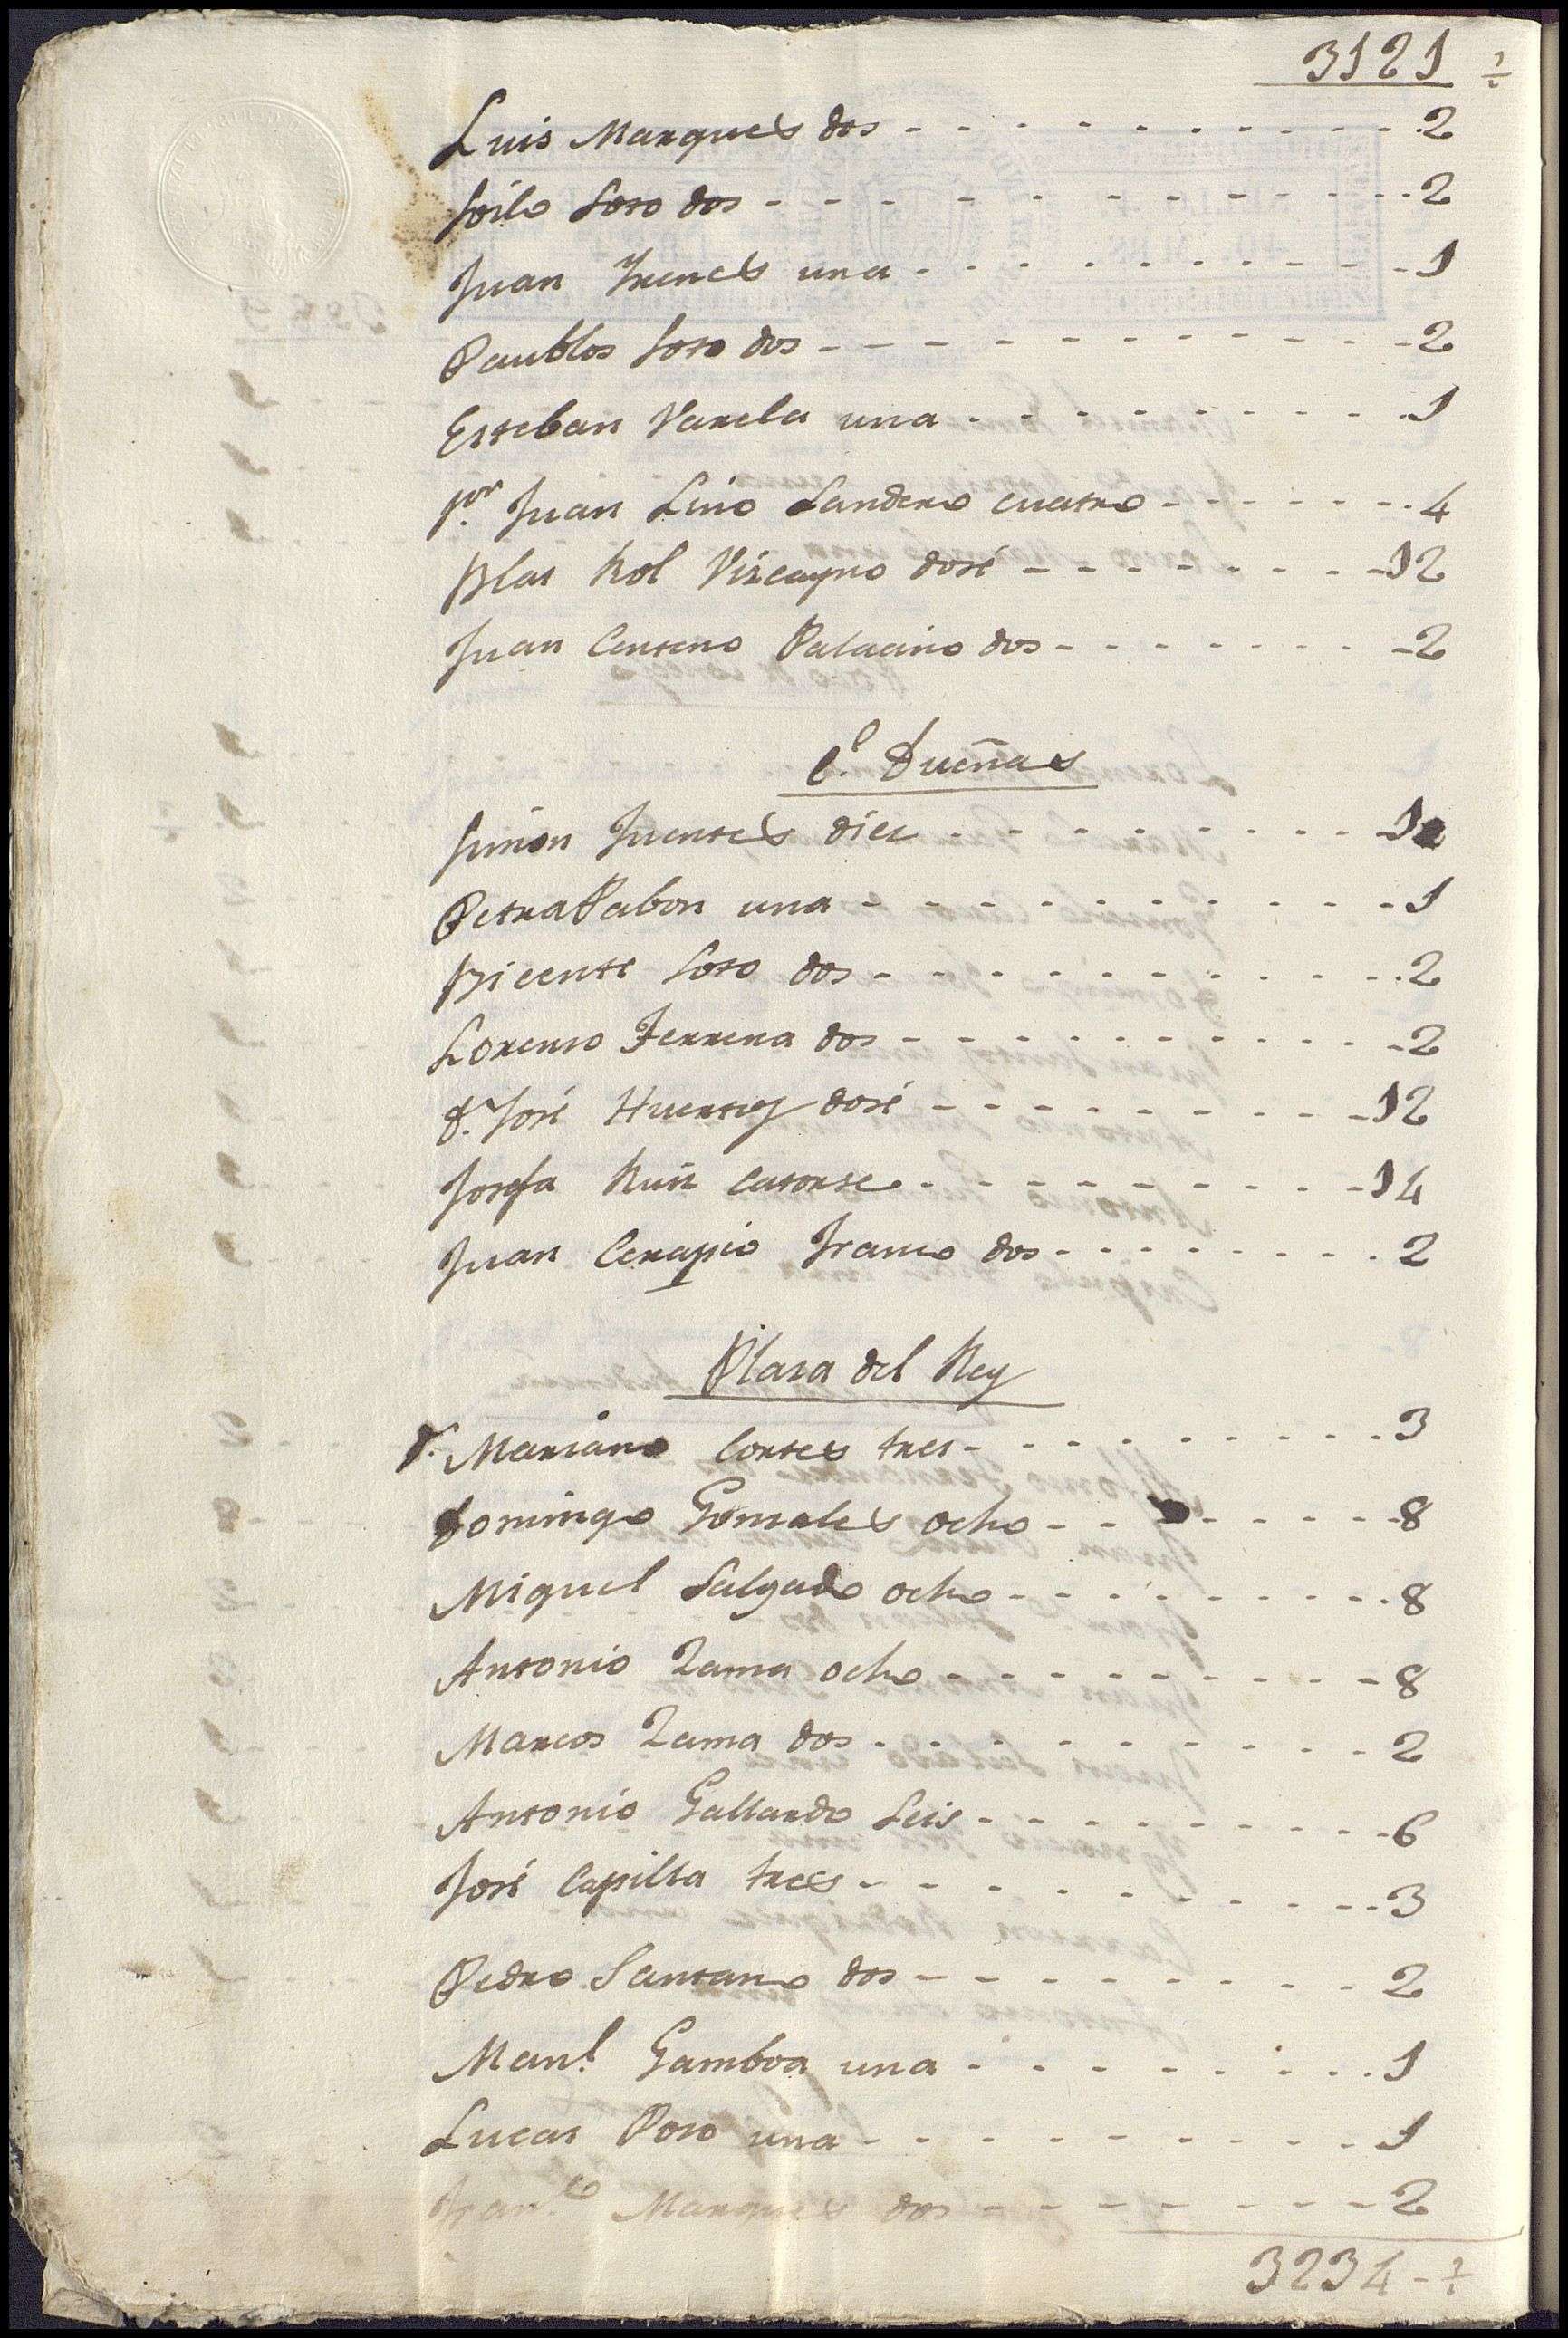 3121 ½
Luis Marques dos - - - - - - - - - - 2
Soilo Soto dos - - - - - - - - - - 2
Juan Frences una - - - - - - - - - - 1
Paublos Soto dos - - - - - - - - - - 2
Esteban Varela una - - - - - - - - - - 1
Juan Lino Landero cuatro - - - - - - - 4
Blas Rol Viscayno dosé - - - - - - - - 12
Juan Centeno Palacino dos - - - - - - - 2
C.l Dueñas
Simon Fuentes dies - - - - - - - - - 10
Petra Pabon una - - - - - - - - - - 1
Bicente Soto dos - - - - - - - - - - 2
Lorenso Ferrera dos - - - - - - - - - - 2
D.n José Huertas dosé - - - - - - - - - 12
Josefa Ruis catorse - - - - - - - - - 14
Juan Cerapio Franco dos - - - - - - - - 2
Plasa del Rey
D. Mariano Cortes tres - - - - - - - - - 3
Domingo Gonsales ocho - - - - - - - - 8
Miguel Salgado ocho - - - - - - - - - 8
Antonio Zama ocho - - - - - - - - - 8
Marcos Zama dos - - - - - - - - - - 2
Antonio Gallardo Seis - - - - - - - - - 6
José Capilla tres - - - - - - - - - - 3
Pedro Santano dos - - - - - - - - - 2
Man.l Gamboa una - - - - - - - - 1
Lucas Poso una - - - - - - - - - 1
Fran.co Marques dos - - - - - - - - 2
3234 - ½